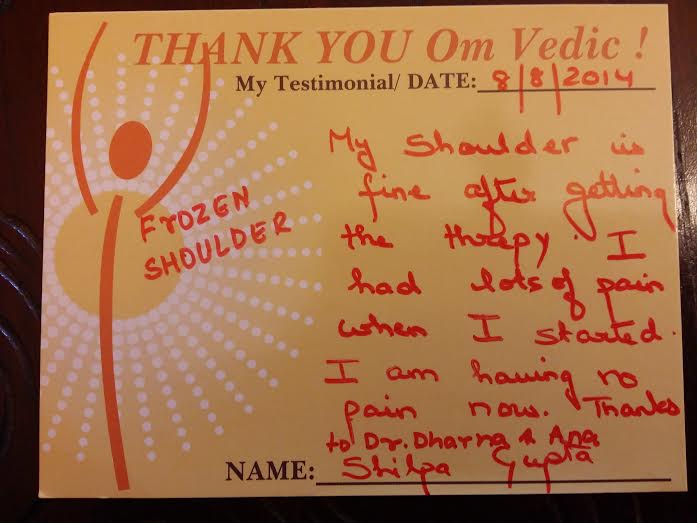 THANK YOU Om Vedic !
My Testimonial/ DATE: 8/8/2014
FROZEN
SHOULDER
My Shoulder is
fine after getting
the threpy. I
had lots of pain
when I started.
I am having no
pain now. Thanks
to Dr. Dharna & Ana
NAME: Shilpa Gupta